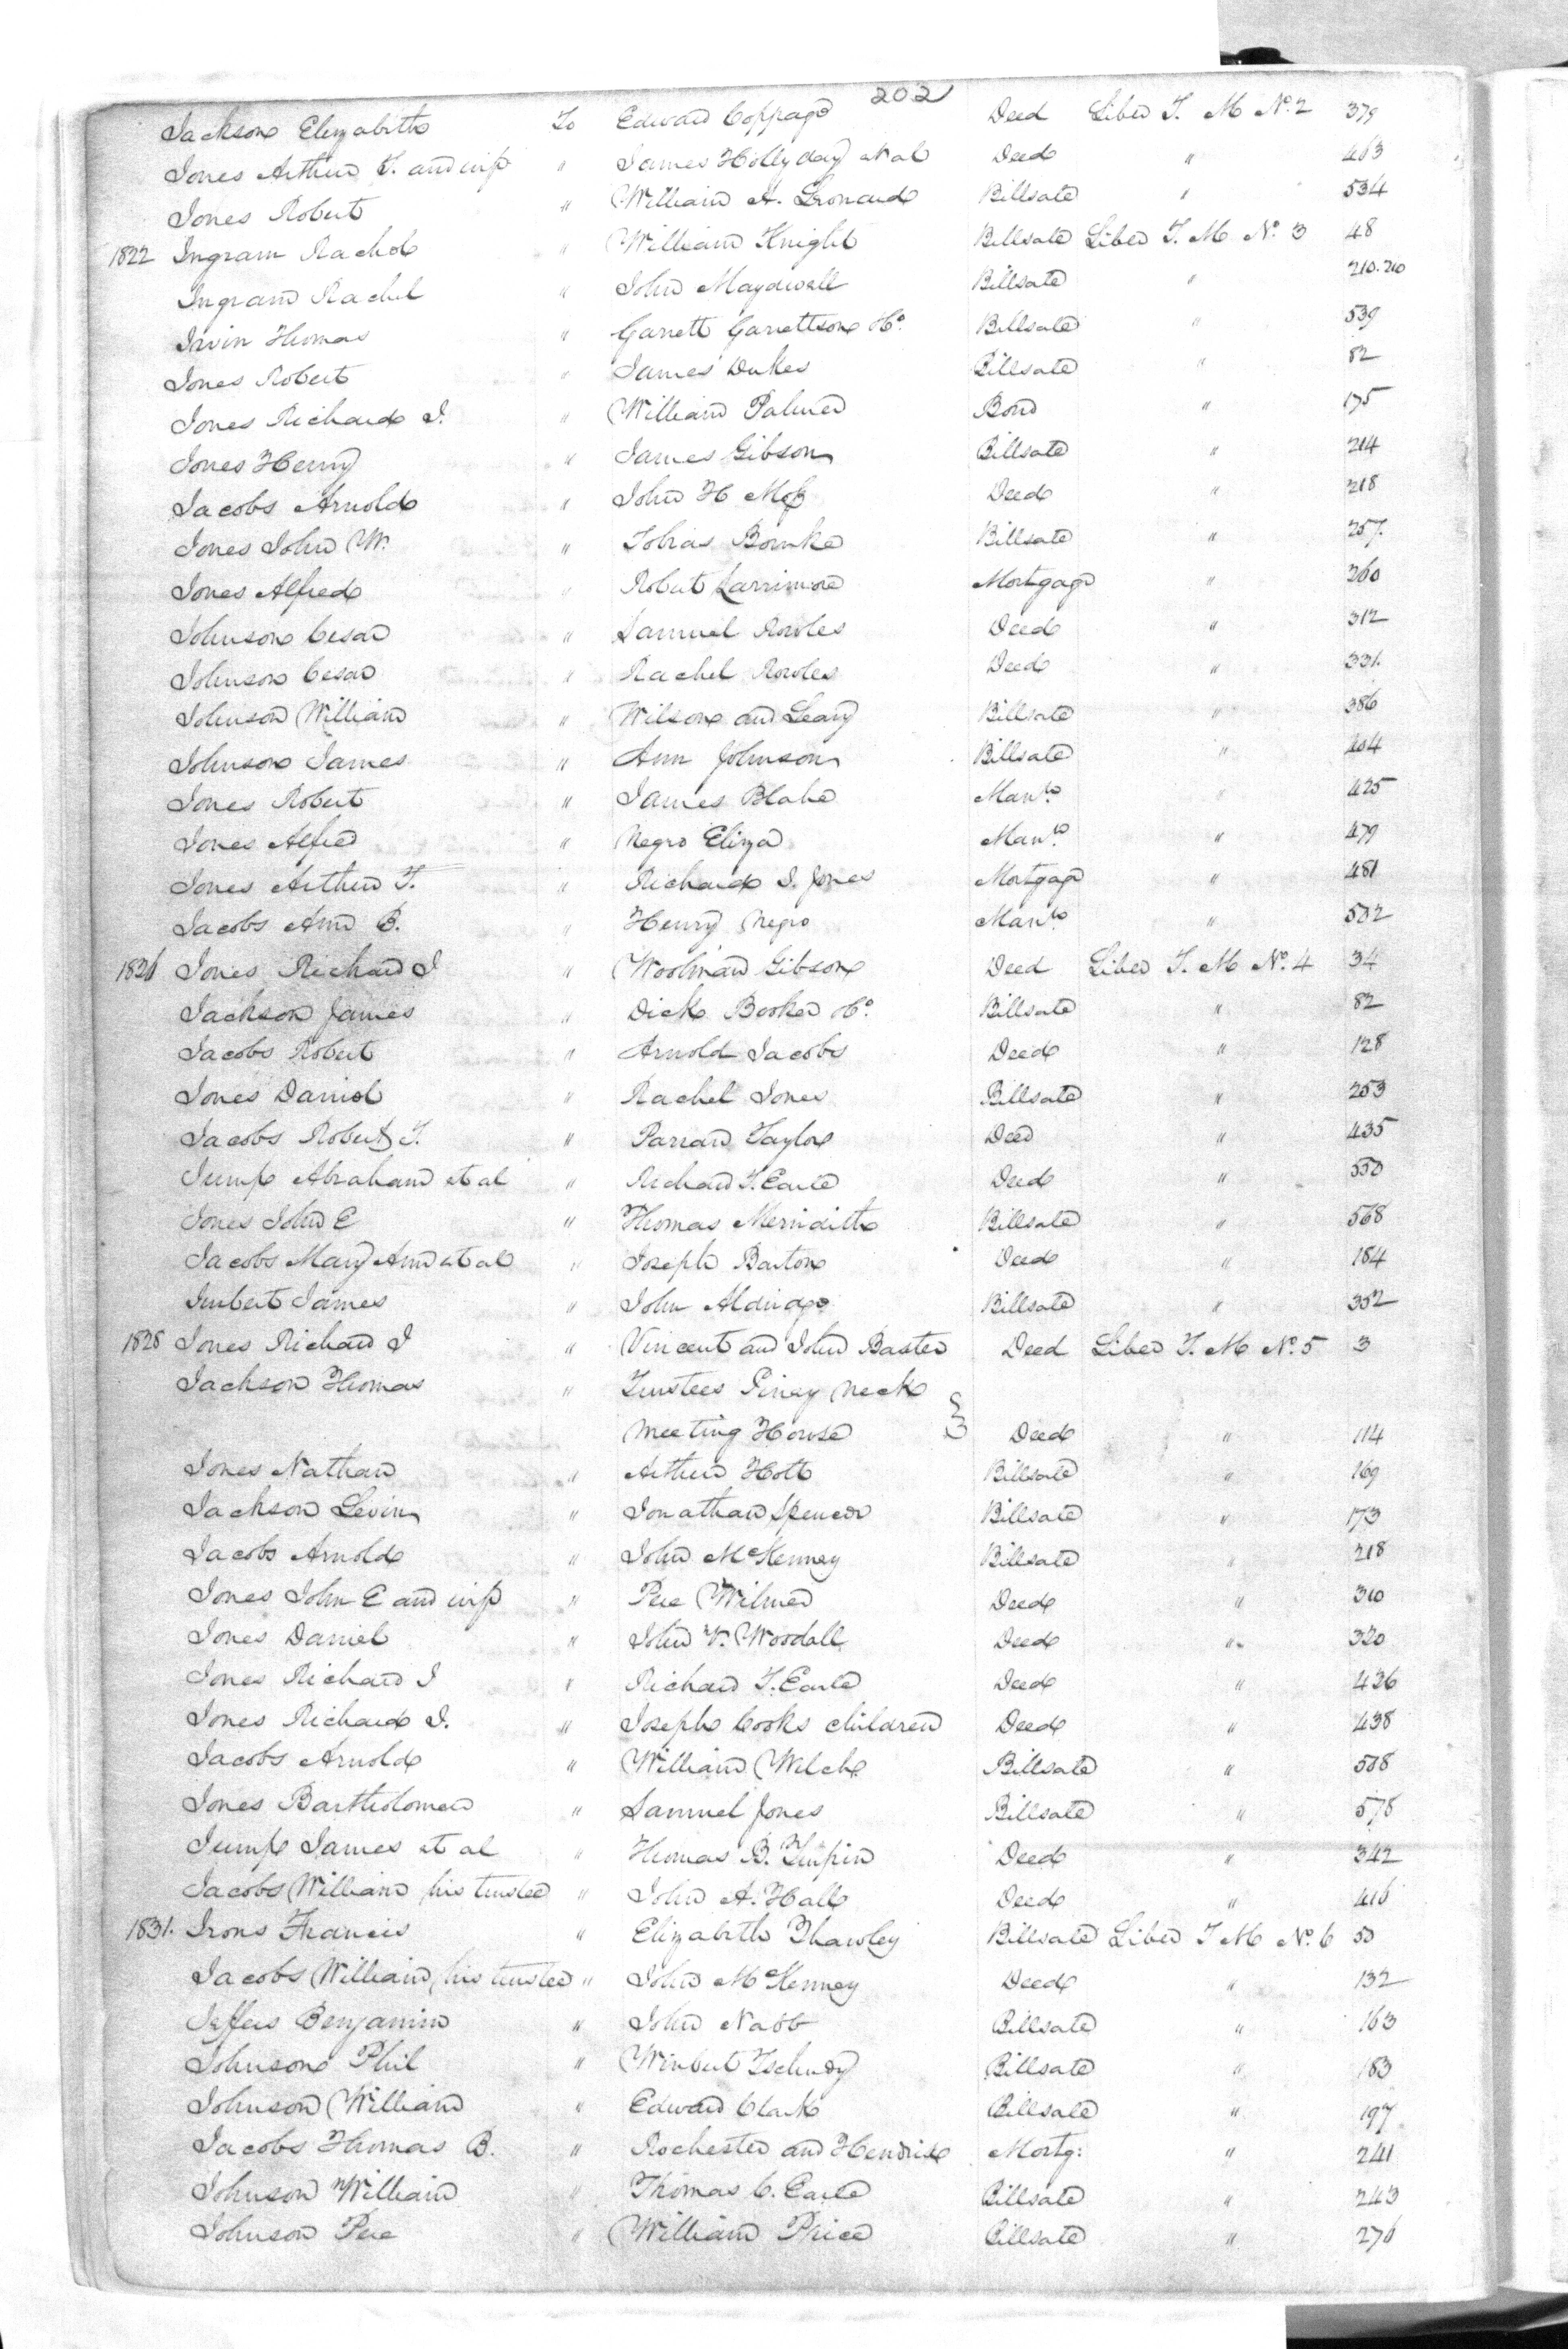 202
Jackson Elizabeth To Edward Coppage Deed Liber T. M No. 2 379
Jones Arthur T. and wife " James Hollyday et al Deed " 463
Jones Robert " William A. Leonard Billsale " 534
1822 Ingram Rachel " William Knight Billsale Liber T. M No. 3 48
Ingram Rachel " John Maydwell Billsale " 210.210
Irvin Thomas " Garrett Garrettson &Co. Billsale " 539
Jones Robert " James Dukes Billsale " 82
Jones Richard I. " William Palmer Bond " 175
Jones Henry " James Gibson Billsale " 214
Jacobs Arnold " John H Deed " 218
Jones John W. " Tobias Bourke Billsale " 257.
Jones Alfred " Robert Larrimore Mortgage " 260
Johnson Cesar " Samuel Rowles Deed " 312
Johnson Cesar " Rachel Rowles Deed " 331.
Johnson William " Wilson and Leary Billsale " 386
Johnson James " Ann Johnson Billsale " 404
Jones Robert " James Blake Manto. " 425
Jones Alfred " Negro Eliza Manto. " 479
Jones Arthur T. " Richard I. Jones Mortgage " 481
Jacobs Ann B. " Henry Negro Manto. " 502
1826 Jones Richard I " Woolman Gibson Deed Liber T. M No. 4 34
Jackson James " Dick Booker &Co. Billsale " 82
Jacobs Robert " Arnold Jacobs Deed " 128
Jones Daniel " Rachel Jones Billsale " 253
Jacobs Robert T. " Parran Taylor Deed " 435
Jump Abraham et al " Richard T. Earle Deed " 550
Jones John E " Thomas Meridith Billsale " 568
Jacobs Mary Ann et al " Joseph Barton Deed " 184
Imbert James " John Aldridge Billsale " 352
1828 Jones Richard I " Vincent and John Baxter Deed Liber T. M No. 5 3
Jackson Thomas " Trustees Piney Neck
Meeting House } Deed " 114
Jones Nathan " Arthur Holt Billsale " 169
Jackson Levin " Jonathan Spencer Billsale " 173
Jacobs Arnold " John McKenney Billsale " 218
Jones John E and wife " Pere Wilmer Deed " 310
Jones Daniel " John V. Woodall Deed " 320
Jones Richard I " Richard T. Earle Deed " 436
Jones Richard I. " Joseph Cooks children Deed " 438
Jacobs Arnold " William Welch Billsale " 508
Jones Bartholomew " Samuel Jones Billsale " 578
Jump James et al " Thomas B. Turpin Deed " 342
Jacobs William his trustee " John A. Hall Deed " 416
1831. Irons Francis " Elizabeth Thawley Billsale Liber T M No. 6 50
Jacobs William his trustee " John McKenney Deed " 132
Jeffers Benjamin " John Nabb Billsale " 163
Johnson Phil " Winbert Tschudy Billsale " 183
Johnson William " Edward Clark Billsale " 197
Jacobs Thomas B. " Rochester and Hendrix Mortg: " 241
Johnson William " Thomas C. Earle Billsale " 243
Johnson Pere " William Price Billsale " 276